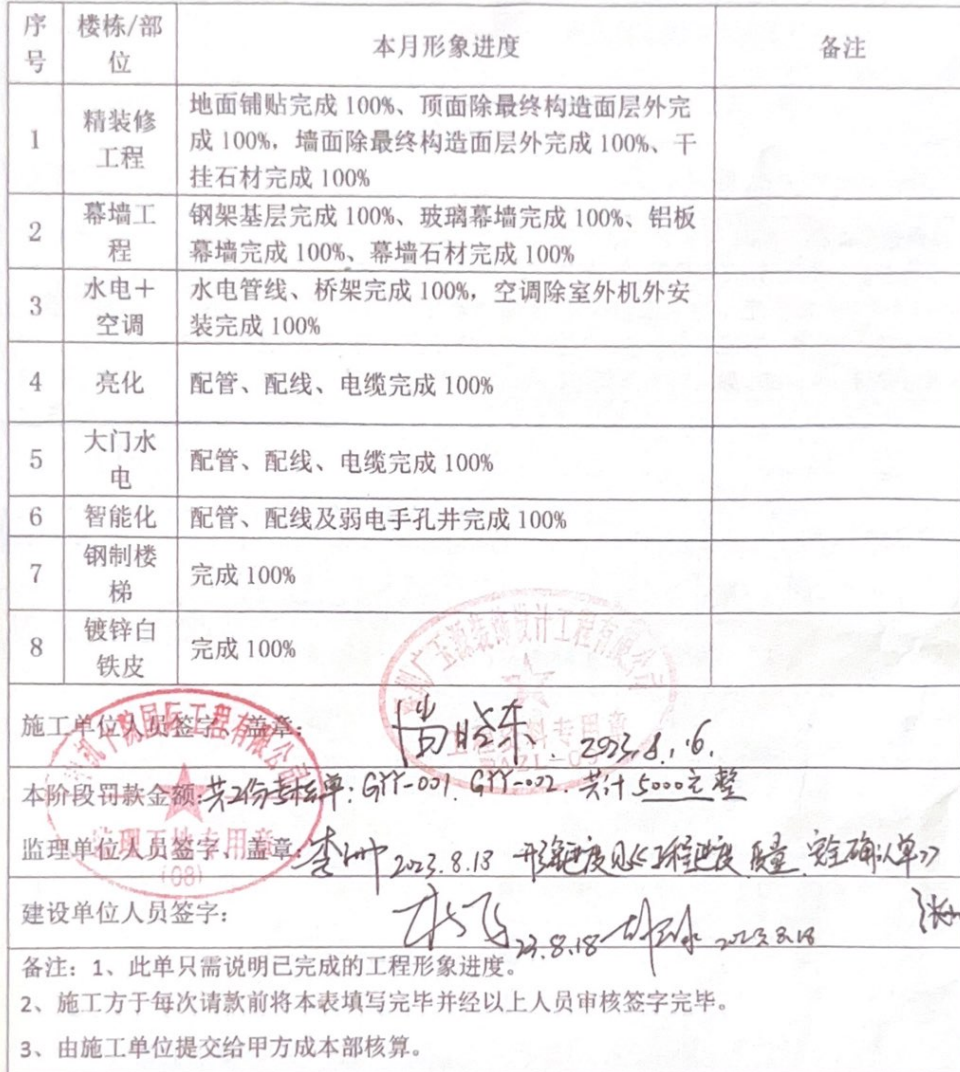 序号 楼栋/部位 本月形象进度 备注
1 精装修工程 地面铺贴完成 100%、顶面除最终构造面层外完
成 100%，墙面除最终构造面层外完成 100%、干
挂石材完成 100%
2 幕墙工程 钢架基层完成 100%、玻璃幕墙完成 100%、铝板
幕墙完成 100%、幕墙石材完成 100%
3 水电＋空调 水电管线、桥架完成 100%，空调除室外机外安
装完成 100%
4 亮化 配管、配线、电缆完成 100%
5 大门水电 配管、配线、电缆完成 100%
6 智能化 配管、配线及弱电手孔井完成 100%
7 钢制楼梯 完成 100%
8 镀锌白铁皮 完成 100%
装饰设计工程有限公司
国际工程有限公司
专用章
(08)
施工单位人员签字、盖章： 2023.8.16.
本阶段罚款金额：共2份考核单：GYY-001、GYY-002. 共计5000元整
监理单位人员签字、盖章： 2023.8.18 形象进度见《工程进度、质量、安全确认单》
建设单位人员签字： 23.8.18 2023.8.18
备注：1、此单只需说明已完成的工程形象进度。
2、施工方于每次请款前将本表填写完毕并经以上人员审核签字完毕。
3、由施工单位提交给甲方成本部核算。